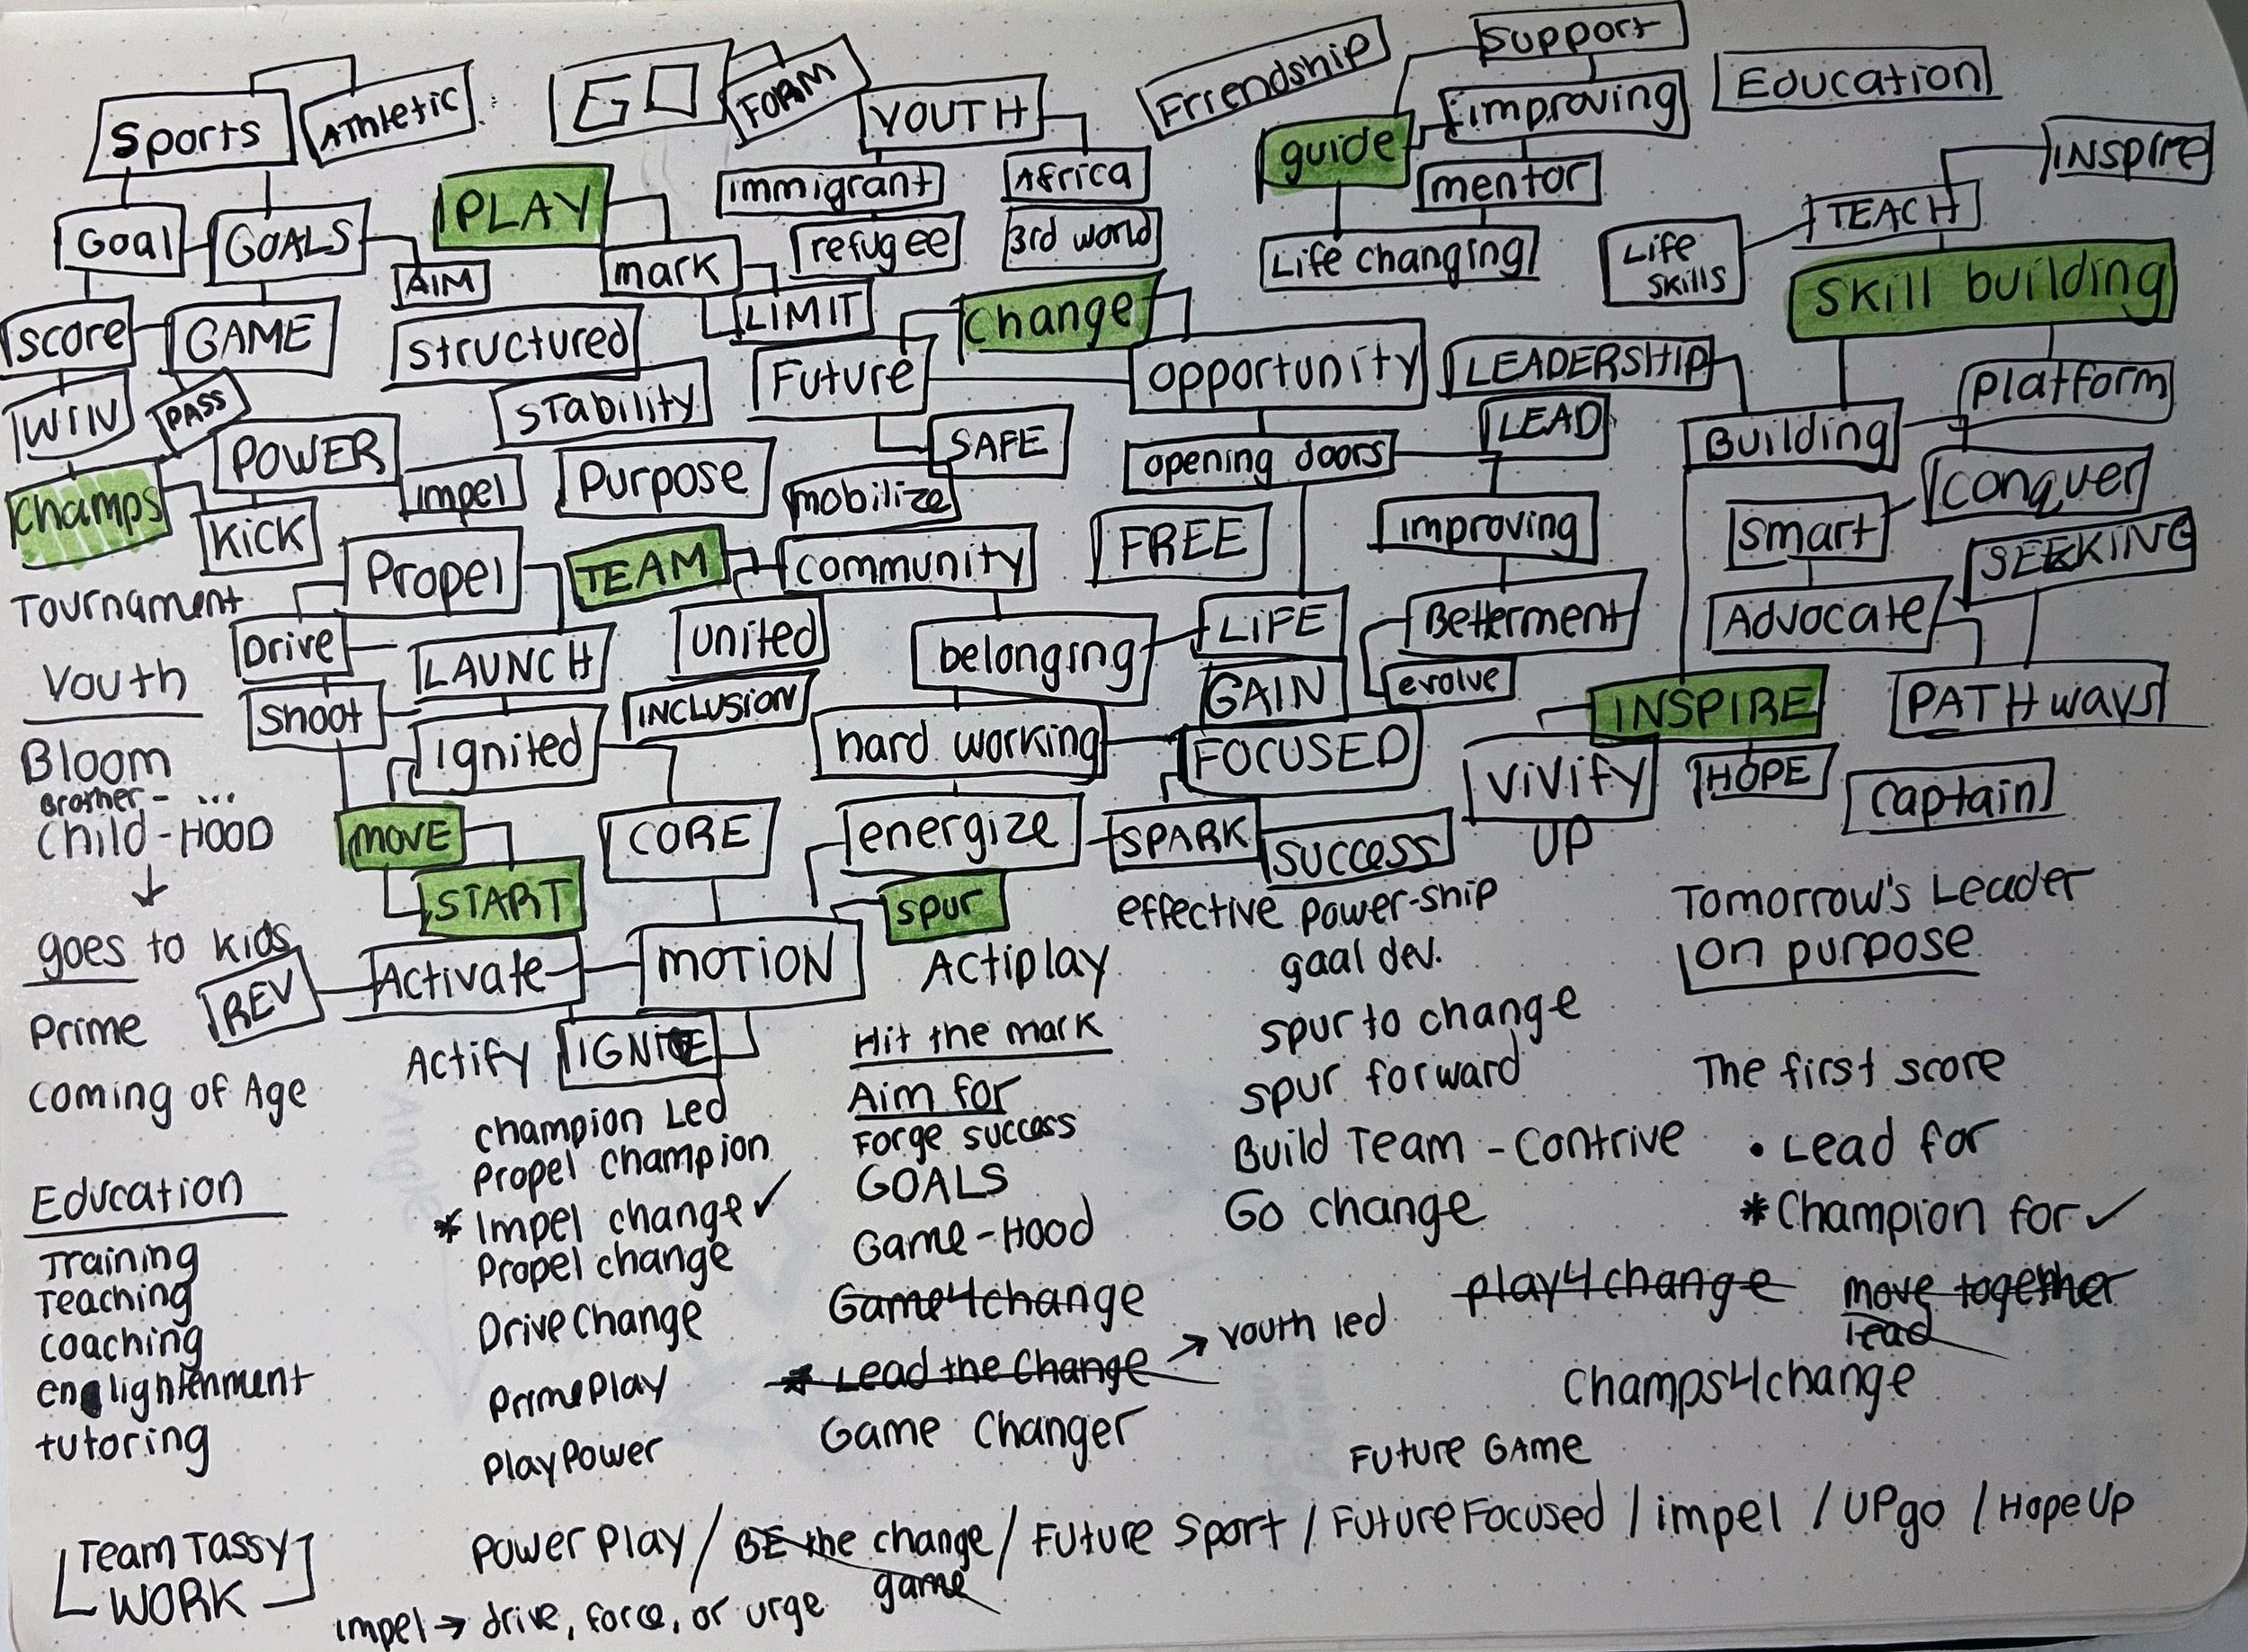 Sports
Athletic
GO
FORM
YOUTH
Friendship
Support
improving
Education
guide
mentor
Life changing
INSPIRE
TEACH
Life skills
Skill building
PLAY
immigrant
Africa
refugee
3rd world
mark
LIMIT
Goal
GOALS
AIM
score
GAME
structured
Future
change
opportunity
LEADERSHIP
LEAD
Building
Platform
WIN
PASS
stability
SAFE
opening doors
POWER
impel
Purpose
mobilize
champs
KICK
Propel
TEAM
community
FREE
improving
smart
conquer
SEEKING
Tournament
Drive
LAUNCH
united
belonging
LIFE
Betterment
Advocate
Youth
shoot
ignited
INCLUSION
hard working
GAIN
FOCUSED
evolve
INSPIRE
PATHways
Bloom
Brother- ...
Child-HOOD
move
CORE
energize
SPARK
success
ViVify
UP
HOPE
captain
START
spur
goes to kids
REV
Activate
MOTION
IGNITE
Prime
coming of Age
Education
Training
Teaching
coaching
englightenment
tutoring
Team Tassy
WORK
Actify
champion Led
Propel champion
* Impel change ✓
Propel change
DriveChange
PrimePlay
PlayPower
Actiplay
Hit the mark
Aim for
Forge success
GOALS
Game-Hood
Game4change
* Lead the Change → youth led
Game Changer
effective power-ship
goal dev.
spur to change
spur forward
Build Team - Contrive
Go change
Tomorrow's Leader
on purpose
The first score
• Lead for
* Champion for ✓
play4change
move together
lead
Champs4change
Future GAME
Power Play / BE the change / Future Sport / FutureFocused / impel / UPgo / HopeUp
game
impel → drive, force, or urge